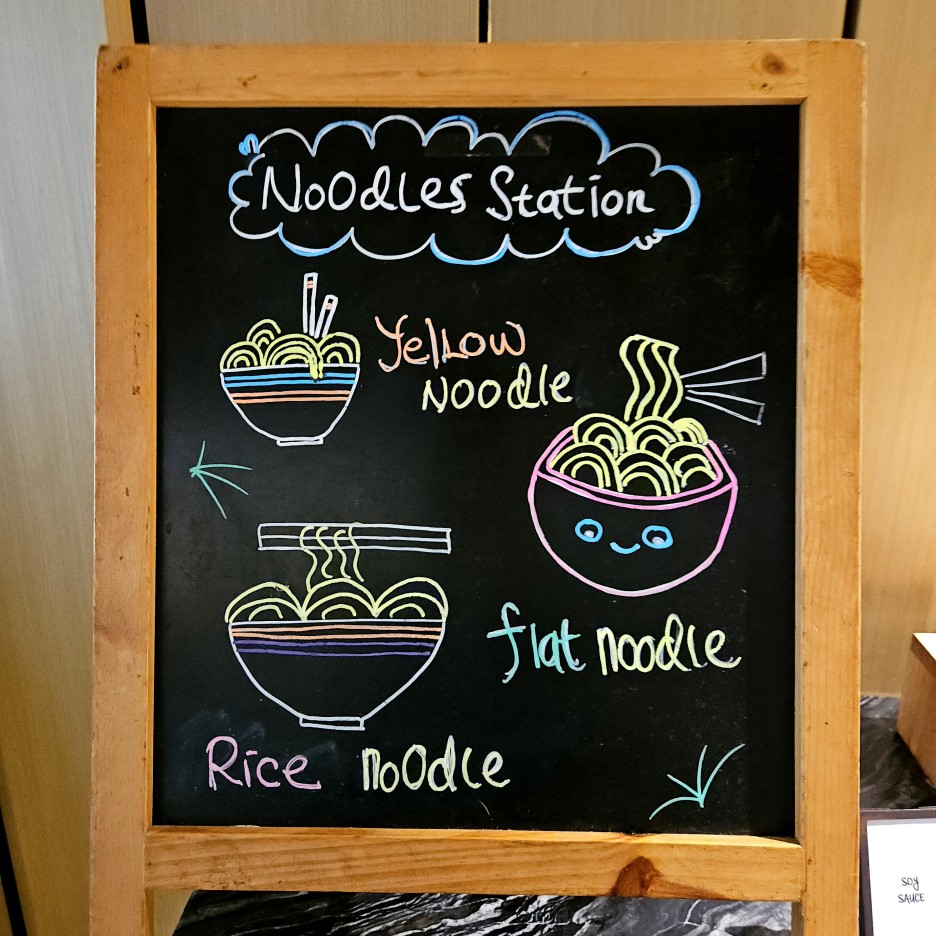 NoodLes Station
Yellow
Noodle
flat noodle
Rice noodle
SOY
SAUCE